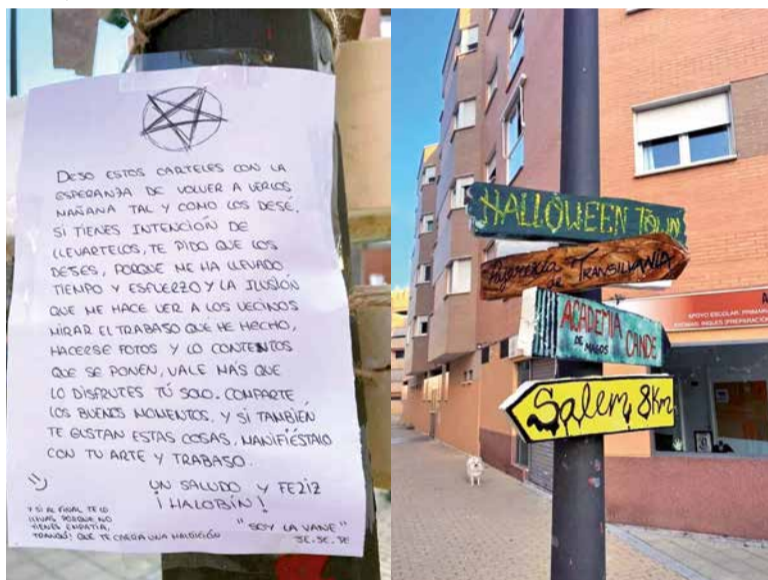 DESO ESTOS CARTELES CON LA
ESPERANZA DE VOLVER A VERLOS
MAÑANA TAL Y COMO LOS DESÉ.
SI TIENES INTENCIÓN DE
LLEVARTELOS, TE PIDO QUE LOS
DESES, PORQUE ME HA LLEVADO
TIEMPO Y ESFUERZO Y LA ILUSIÓN
QUE ME HACE VER A LOS VECINOS
MIRAR EL TRABASO QUE HE HECHO,
HACERSE FOTOS Y LO CONTENTOS
QUE SE PONEN, VALE MÁS QUE
LO DISFRUTES TÚ SOLO. COMPARTE
LOS BUENOS MOMENTOS, Y SI TAMBIÉN
TE GUSTAN ESTAS COSAS, MANIFIÉSTALO
CON TU ARTE Y TRABASO.
UN SALUDO Y FEZIZ
¡HALOBÍN!
"SOY LA VANE"
JE. SE. JE
Y SI AL FINAL TE LO
LLEVAS PORQUE NO
TIENES EMPATÍA,
TRANQUI QUE TE CAERA UNA MALDICIÓN
HALLOWEEN TOWN
de TRANSILVANIA
ACADEMIA
DE MAGOS CANDE
Salem 8Km
APOYO ESCOLAR: PRIMARIA